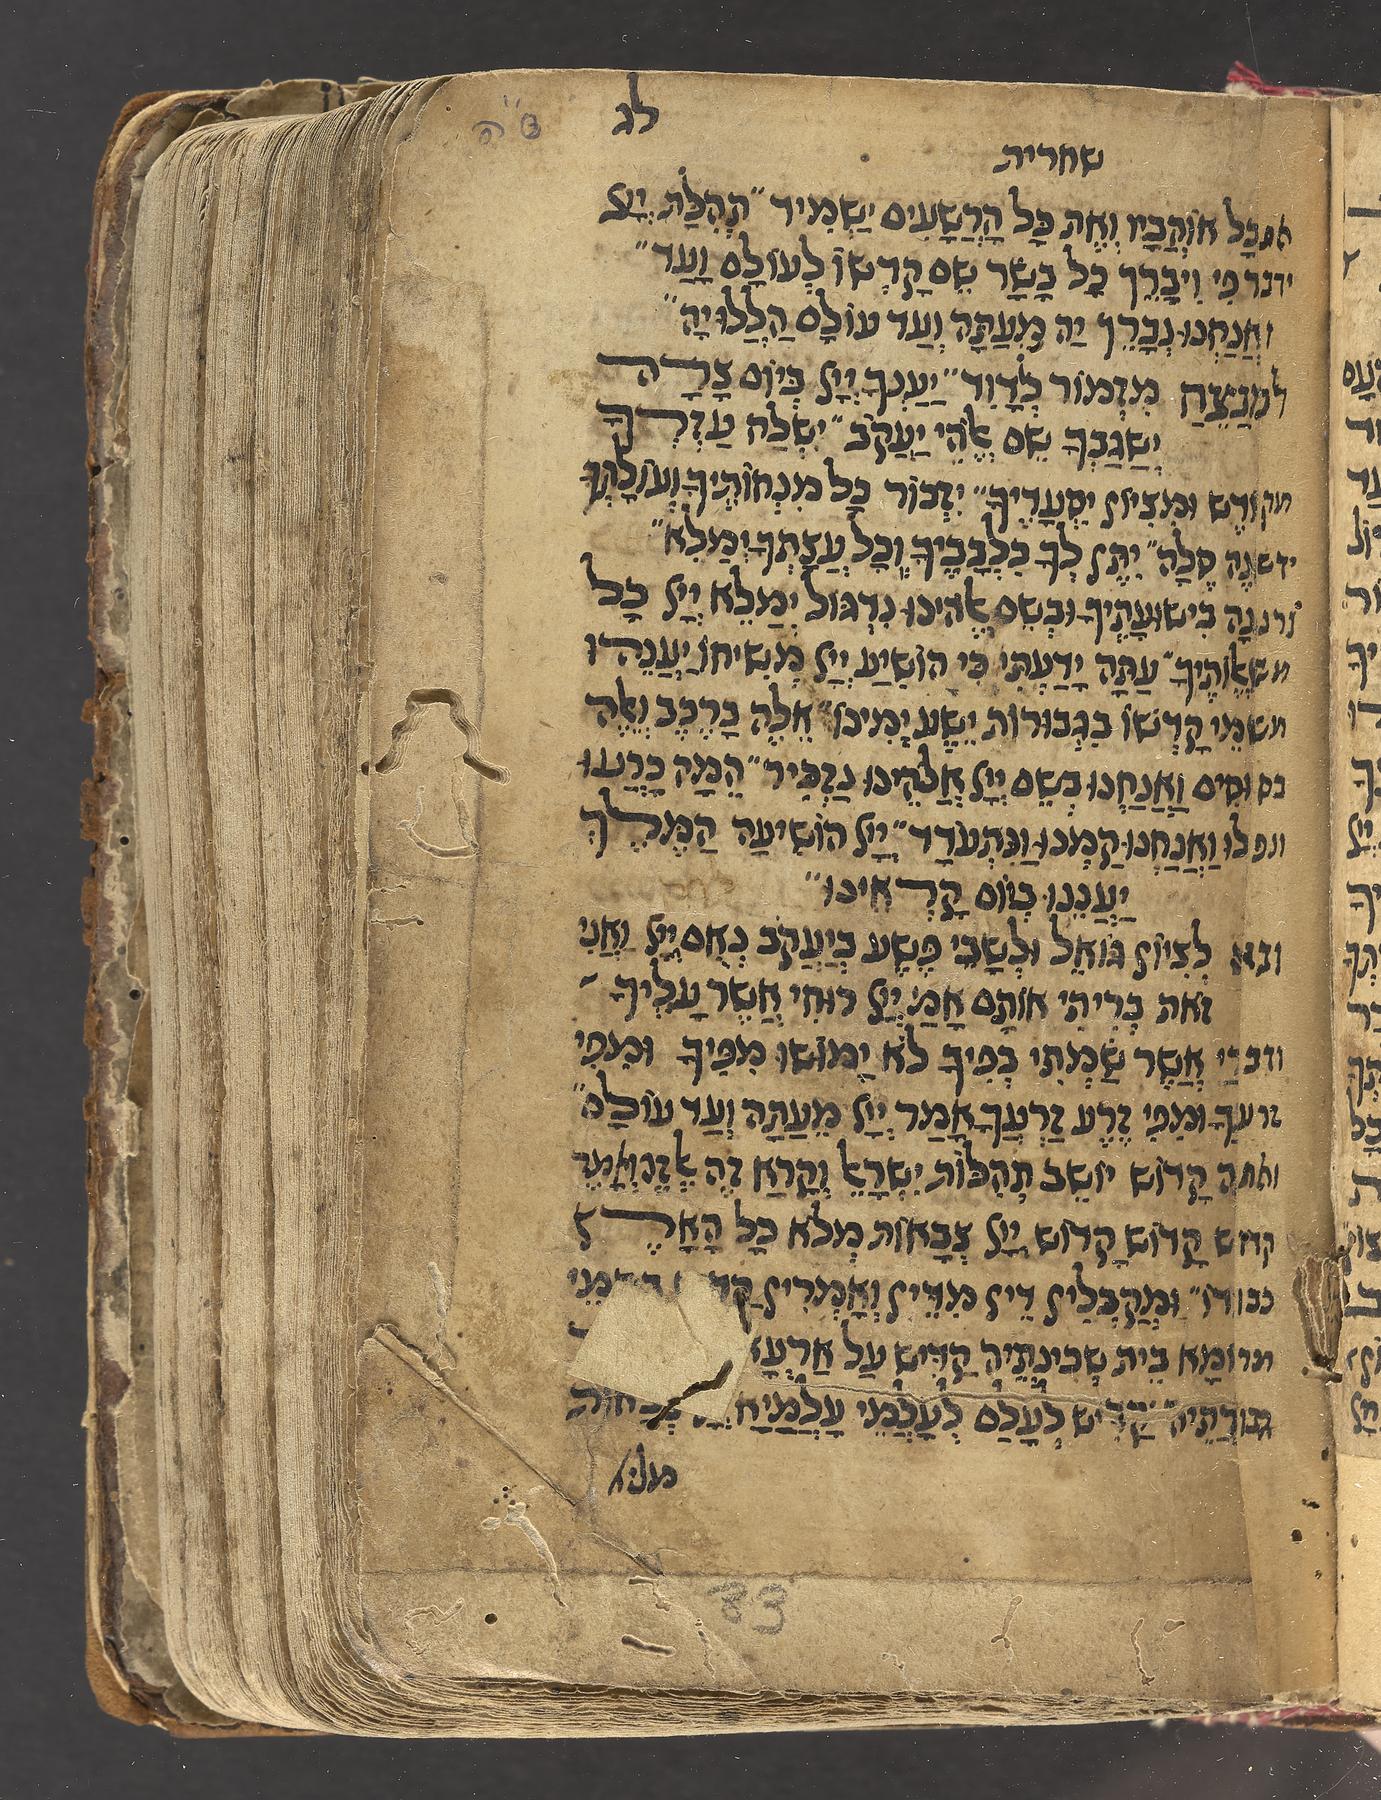 לג
שחרית
את כָל אוֹהֲבָיו וְאֶת כָּל הָרְשָׁעִים יַשְׁמִיד״ תְּהִלַּת יְיָ
ידבר פִּי וִיבָרֵךְ כָּל בָּשָׂר שֵׁם קָדְשׁוֹ לְעוֹלָם וָעֵד״
וַאֲנַחְנוּ נְבָרֵךְ יַהּ מֵעַתָּה וְעַד עוֹלָם הַלְלוּיָהּ״
למְנַצֵּחַ מִזְמוֹר לְדָוִד״ יַעַנְךָ יְיָ בְּיוֹם צָרָה
יְשַׂגֶּבְךָ שֵׁם אֱלֹהֵי יַעֲקֹב״ יִשְׁלַח עֶזְרְךָ
מקוֹדֶשׁ וּמִצִּיּוֹן יִסְעָדֶךָּ״ יִזְכּוֹר כָּל מִנְחוֹתֶיךָ וְעוֹלָתְךָ
ידשְׁנֶה סֶלָה״ יִתֶּן לְךָ כִלְבָבֶךָ וְכָל עֲצָתְךָ יְמַלֵּא״
נרננָה בִּישׁוּעָתֶיךָ וּבְשֵׁם אֱלֹהֵינוּ נִדְגּוֹל יְמַלֵּא יְיָ כָּל
משאֲלוֹתֶיךָ״ עַתָּה יָדַעְתִּי כִּי הוֹשִׁיעַ יְיָ מְשִׁיחוֹ יַעֲנֵהוּ
משמֵי קָדְשׁוֹ בִּגְבוּרוֹת יֵשַׁע יְמִינוֹ״ אֵלֶּה בָרֶכֶב וְאֵלֶּה
בסוּסִים וַאֲנַחְנוּ בְּשֵׁם יְיָ אֱלֹהֵינוּ נַזְכִּיר״ הֵמָּה כָּרְעוּ
ונפלוּ וַאֲנַחְנוּ קַמְנוּ וַנִּתְעוֹדָד״ יְיָ הוֹשִׁיעָה הַמֶּלֶךְ
יַעֲנֵנוּ בְיוֹם קָרְאֵינוּ״
ובא לְצִיּוֹן גּוֹאֵל וּלְשָׁבֵי פֶשַׁע בְּיַעֲקֹב נְאֻם יְיָ וַאֲנִי
זאת בְּרִיתִי אוֹתָם אָמַר יְיָ רוּחִי אֲשֶׁר עָלֶיךָ
ודברַי אֲשֶׁר שַׂמְתִּי בְּפִיךָ לֹא יָמוּשׁוּ מִפִּיךָ וּמִפִּי
זרעךָ וּמִפִּי זֶרַע זַרְעֲךָ אָמַר יְיָ מֵעַתָּה וְעַד עוֹלָם״
ואתה קָדוֹשׁ יוֹשֵׁב תְּהִלּוֹת יִשְׂרָאֵל וְקָרָא זֶה אֶל זֶה וְאָמַר
קדוש קָדוֹשׁ קָדוֹשׁ יְיָ צְבָאוֹת מְלֹא כָל הָאָרֶץ
כבודו״ וּמְקַבְּלִין דֵּין מִדֵּין וְאָמְרִין
מרוֹמָא בֵּית שְׁכִינְתֵּיהּ קַדִּישׁ עַל אַרְעָא
גבוּרְתֵּיהּ קַדִּישׁ לְעָלַם לְעָלְמֵי עָלְמַיָּא
33